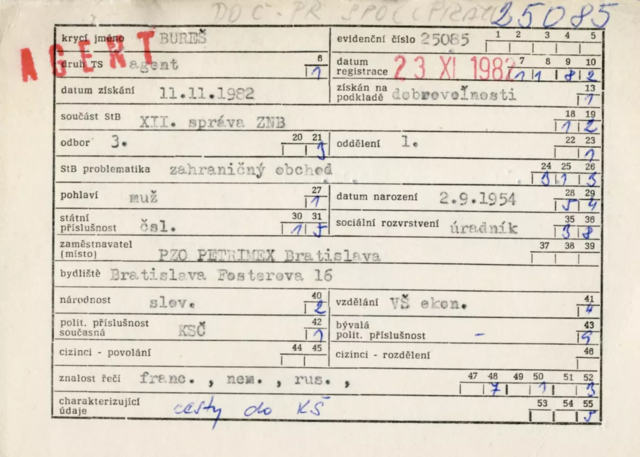 25085
krycí jméno BUREŠ evidenční číslo 25085 1 2 3 4 5
AGENT
druh TS agent 6 1 datum registrace 23 XI. 1982 7 8 9 10 1 1 8 2
datum získání 11.11.1982 získán na podkladě dobrovoľnosti 13 1
součást StB XII. správa ZNB 18 19 1 2
odbor 3. 20 21 3 oddělení 1. 22 23 1
StB problematika zahraničný obchod 24 25 26 3 1 3
pohlaví muž 27 1 datum narození 2.9.1954 28 29 5 4
státní příslušnost čsl. 30 31 1 5 sociální rozvrstvení úradník 35 36 3 8
zaměstnavatel (místo) PZO PETRIMEX Bratislava 37 38 39
bydliště Bratislava Fosterova 16
národnost slov. 40 2 vzdělání VŠ ekon. 41 4
polit. příslušnost současná KSČ 42 1 bývalá polit. příslušnost - 43 9
cizinci - povolání 44 45 cizinci - rozdělení 46
znalost řečí franc. , nem. , rus. , 47 48 49 50 51 52 7 1 3
charakterizující údaje cesty do KŠ 53 54 55 5